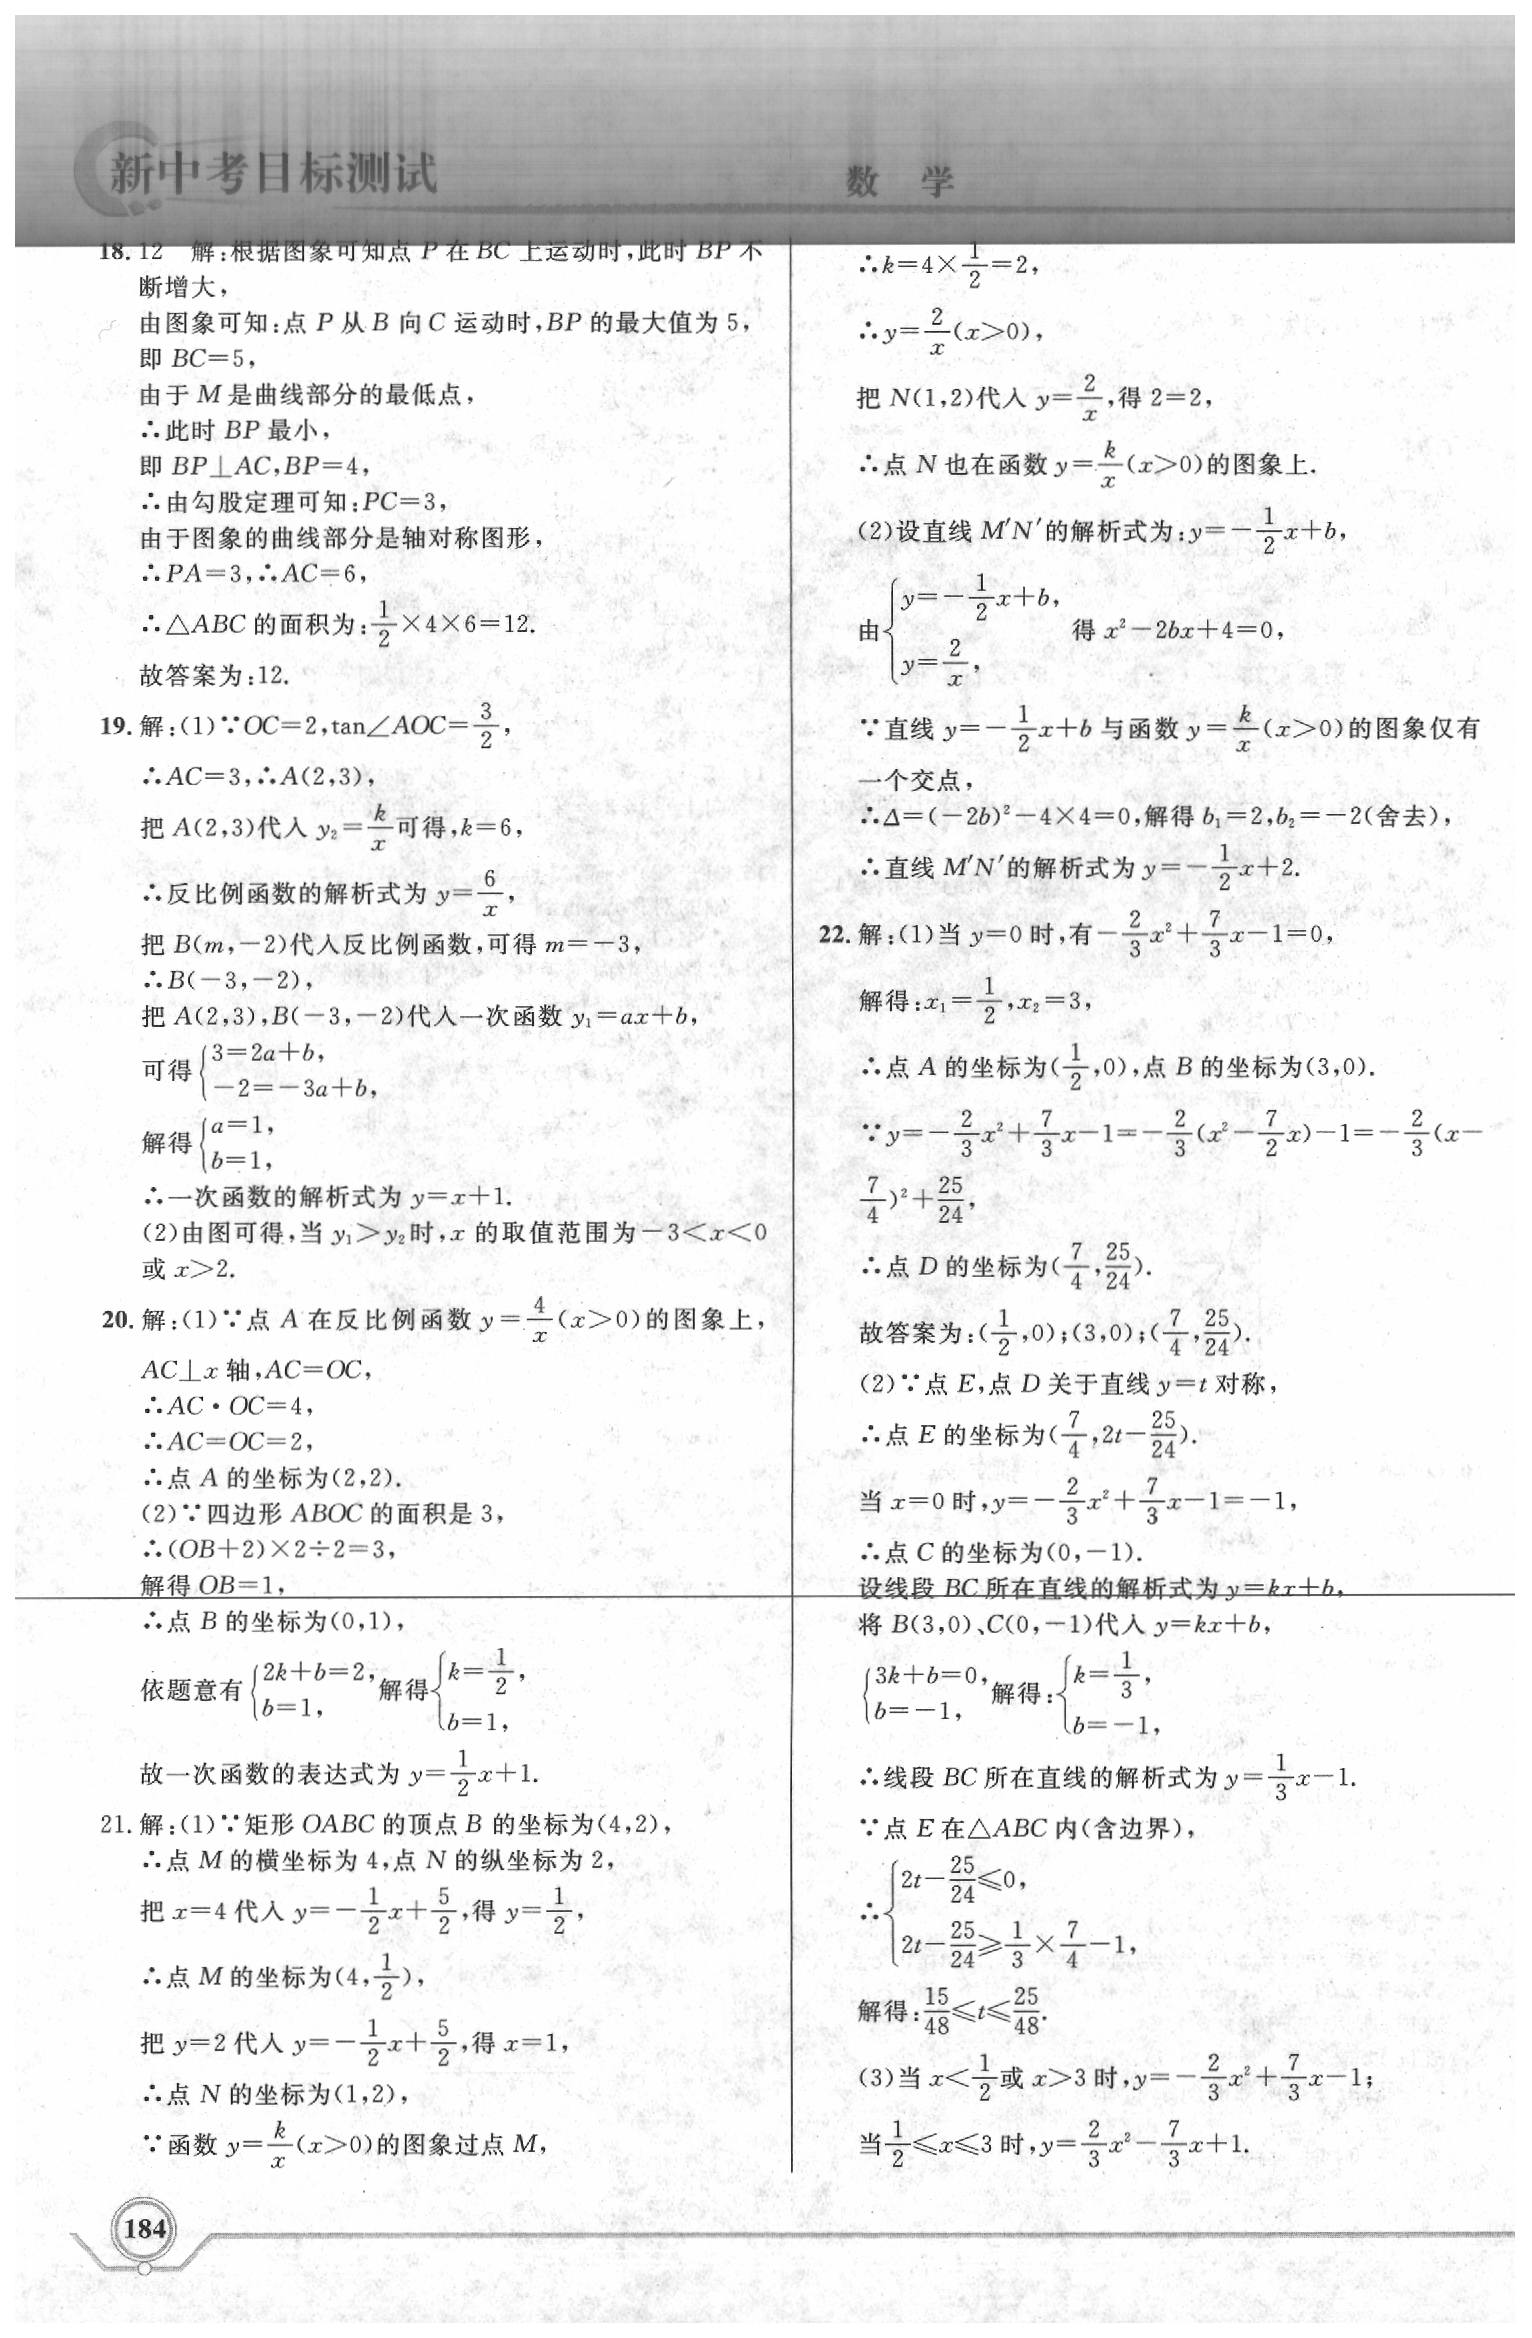 新中考目标测试
数 学
18. 12 解:根据图象可知点 P 在 BC 上运动时,此时 BP 不
断增大,
由图象可知:点 P 从 B 向 C 运动时,BP 的最大值为 5,
即 BC=5,
由于 M 是曲线部分的最低点,
∴此时 BP 最小,
即 BP⊥AC,BP=4,
∴由勾股定理可知:PC=3,
由于图象的曲线部分是轴对称图形,
∴PA=3,∴AC=6,
∴△ABC 的面积为:1/2×4×6=12.
故答案为:12.
19. 解:(1)∵OC=2,tan∠AOC=3/2,
∴AC=3,∴A(2,3),
把 A(2,3)代入 y₂=k/x可得,k=6,
∴反比例函数的解析式为 y=6/x,
把 B(m,−2)代入反比例函数,可得 m=−3,
∴B(−3,−2),
把 A(2,3),B(−3,−2)代入一次函数 y₁=ax+b,
可得{3=2a+b,
−2=−3a+b,
解得{a=1,
b=1,
∴一次函数的解析式为 y=x+1.
(2)由图可得,当 y₁>y₂时,x 的取值范围为−3<x<0
或 x>2.
20. 解:(1)∵点 A 在反比例函数 y=4/x(x>0)的图象上,
AC⊥x 轴,AC=OC,
∴AC·OC=4,
∴AC=OC=2,
∴点 A 的坐标为(2,2).
(2)∵四边形 ABOC 的面积是 3,
∴(OB+2)×2÷2=3,
解得 OB=1,
∴点 B 的坐标为(0,1),
依题意有{2k+b=2, b=1, 解得{k=1/2, b=1,
故一次函数的表达式为 y=1/2x+1.
21. 解:(1)∵矩形 OABC 的顶点 B 的坐标为(4,2),
∴点 M 的横坐标为 4,点 N 的纵坐标为 2,
把 x=4 代入 y=−1/2x+5/2,得 y=1/2,
∴点 M 的坐标为(4,1/2),
把 y=2 代入 y=−1/2x+5/2,得 x=1,
∴点 N 的坐标为(1,2),
∵函数 y=k/x(x>0)的图象过点 M,
∴k=4×1/2=2,
∴y=2/x(x>0),
把 N(1,2)代入 y=2/x,得 2=2,
∴点 N 也在函数 y=k/x(x>0)的图象上.
(2)设直线 M′N′的解析式为:y=−1/2x+b,
由{y=−1/2x+b, y=2/x, 得 x²−2bx+4=0,
∵直线 y=−1/2x+b 与函数 y=k/x(x>0)的图象仅有
一个交点,
∴Δ=(−2b)²−4×4=0,解得 b₁=2,b₂=−2(舍去),
∴直线 M′N′的解析式为 y=−1/2x+2.
22. 解:(1)当 y=0 时,有−2/3x²+7/3x−1=0,
解得:x₁=1/2,x₂=3,
∴点 A 的坐标为(1/2,0),点 B 的坐标为(3,0).
∵y=−2/3x²+7/3x−1=−2/3(x²−7/2x)−1=−2/3(x−
7/4)²+25/24,
∴点 D 的坐标为(7/4,25/24).
故答案为:(1/2,0);(3,0);(7/4,25/24).
(2)∵点 E,点 D 关于直线 y=t 对称,
∴点 E 的坐标为(7/4,2t−25/24).
当 x=0 时,y=−2/3x²+7/3x−1=−1,
∴点 C 的坐标为(0,−1).
设线段 BC 所在直线的解析式为 y=kx+b,
将 B(3,0)、C(0,−1)代入 y=kx+b,
{3k+b=0, b=−1, 解得:{k=1/3, b=−1,
∴线段 BC 所在直线的解析式为 y=1/3x−1.
∵点 E 在△ABC 内(含边界),
∴{2t−25/24≤0,
2t−25/24≥1/3×7/4−1,
解得:15/48≤t≤25/48.
(3)当 x<1/2或 x>3 时,y=−2/3x²+7/3x−1;
当1/2≤x≤3 时,y=2/3x²−7/3x+1.
184